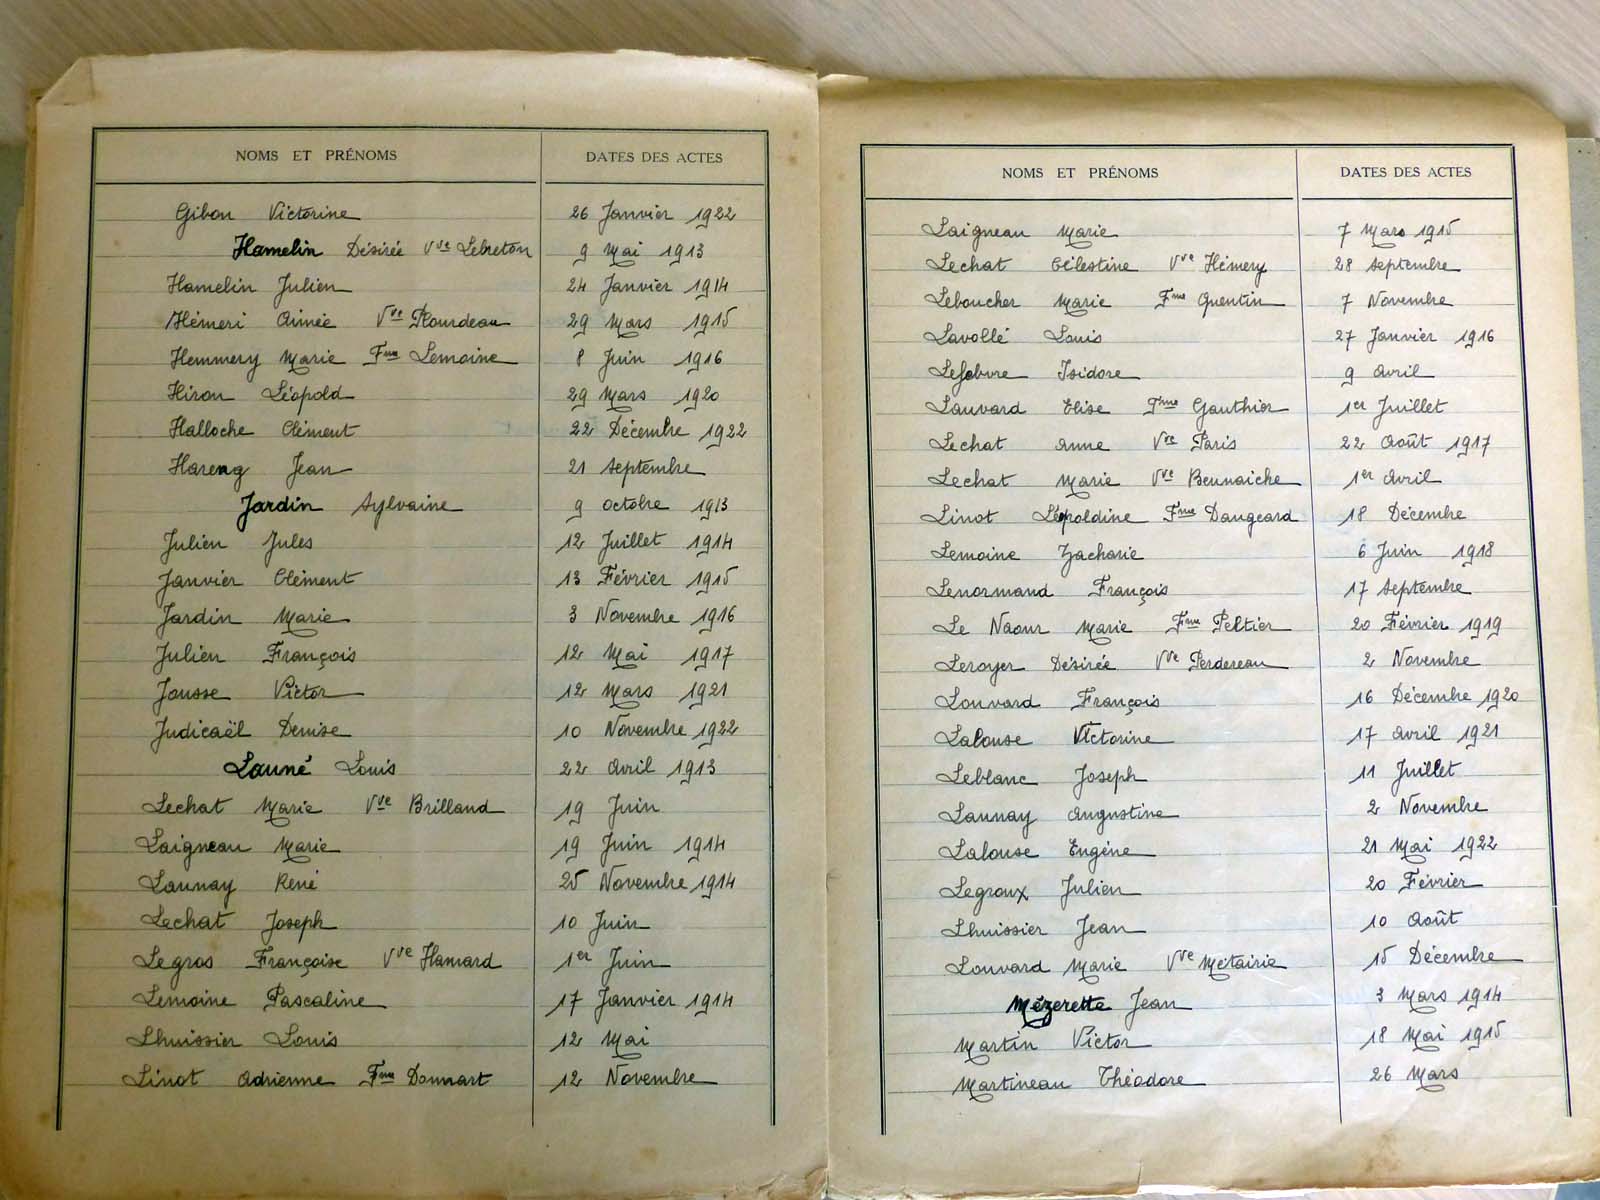 NOMS ET PRÉNOMS DATES DES ACTES
Gibon Victorine 26 Janvier 1922
Hamelin Désirée Vve Lebreton 9 Mai 1913
Hamelin Julien 24 Janvier 1914
Hémeri Aimée Vve Plourdeau 29 Mars 1915
Hemmery Marie Fme Lemoine 8 Juin 1916
Hiron Léopold 29 Mars 1920
Halloche Clément 22 Décembre 1922
Hareng Jean 21 Septembre
Jardin Sylvaine 9 octobre 1913
Julien Jules 12 Juillet 1914
Janvier Clément 13 Février 1915
Jardin Marie 3 Novembre 1916
Julien François 12 Mai 1917
Jousse Victor 12 Mars 1921
Judicaël Denise 10 Novembre 1922
Launé Louis 22 Avril 1913
Lechat Marie Vve Brilland 19 Juin
Laigneau Marie 19 Juin 1914
Launay René 25 Novembre 1914
Lechat Joseph 10 Juin
Legros Françoise Vve Hamard 1er Juin
Lemoine Pascaline 17 Janvier 1914
Lhuissier Louis 12 Mai
Linot Adrienne Fme Donnart 12 Novembre
NOMS ET PRÉNOMS DATES DES ACTES
Laigneau Marie 7 Mars 1915
Lechat Célestine Vve Hémery 28 Septembre
Leboucher Marie Fme Quentin 7 Novembre
Lavollé Louis 27 Janvier 1916
Lefebvre Isidore 9 Avril
Lauvard Elise Fme Gauthier 1er Juillet
Lechat Anne Vve Paris 22 Août 1917
Lechat Marie Vve Beunaiche 1er Avril
Linot Léopoldine Fme Daugeard 18 Décembre
Lemoine Zacharie 6 Juin 1918
Lenormand François 17 Septembre
Le Naour Marie Fme Peltier 20 Février 1919
Leroyer Désirée Vve Perdereau 2 Novembre
Louvard François 16 Décembre 1920
Lalouse Victorine 17 Avril 1921
Leblanc Joseph 11 Juillet
Launay Augustine 2 Novembre
Lalouse Eugène 21 Mai 1922
Legroux Julien 20 Février
Lhuissier Jean 10 Août
Louvard Marie Vve Métairie 15 Décembre
Mézerette Jean 3 Mars 1914
Martin Victor 18 Mai 1915
Martineau Théodore 26 Mars